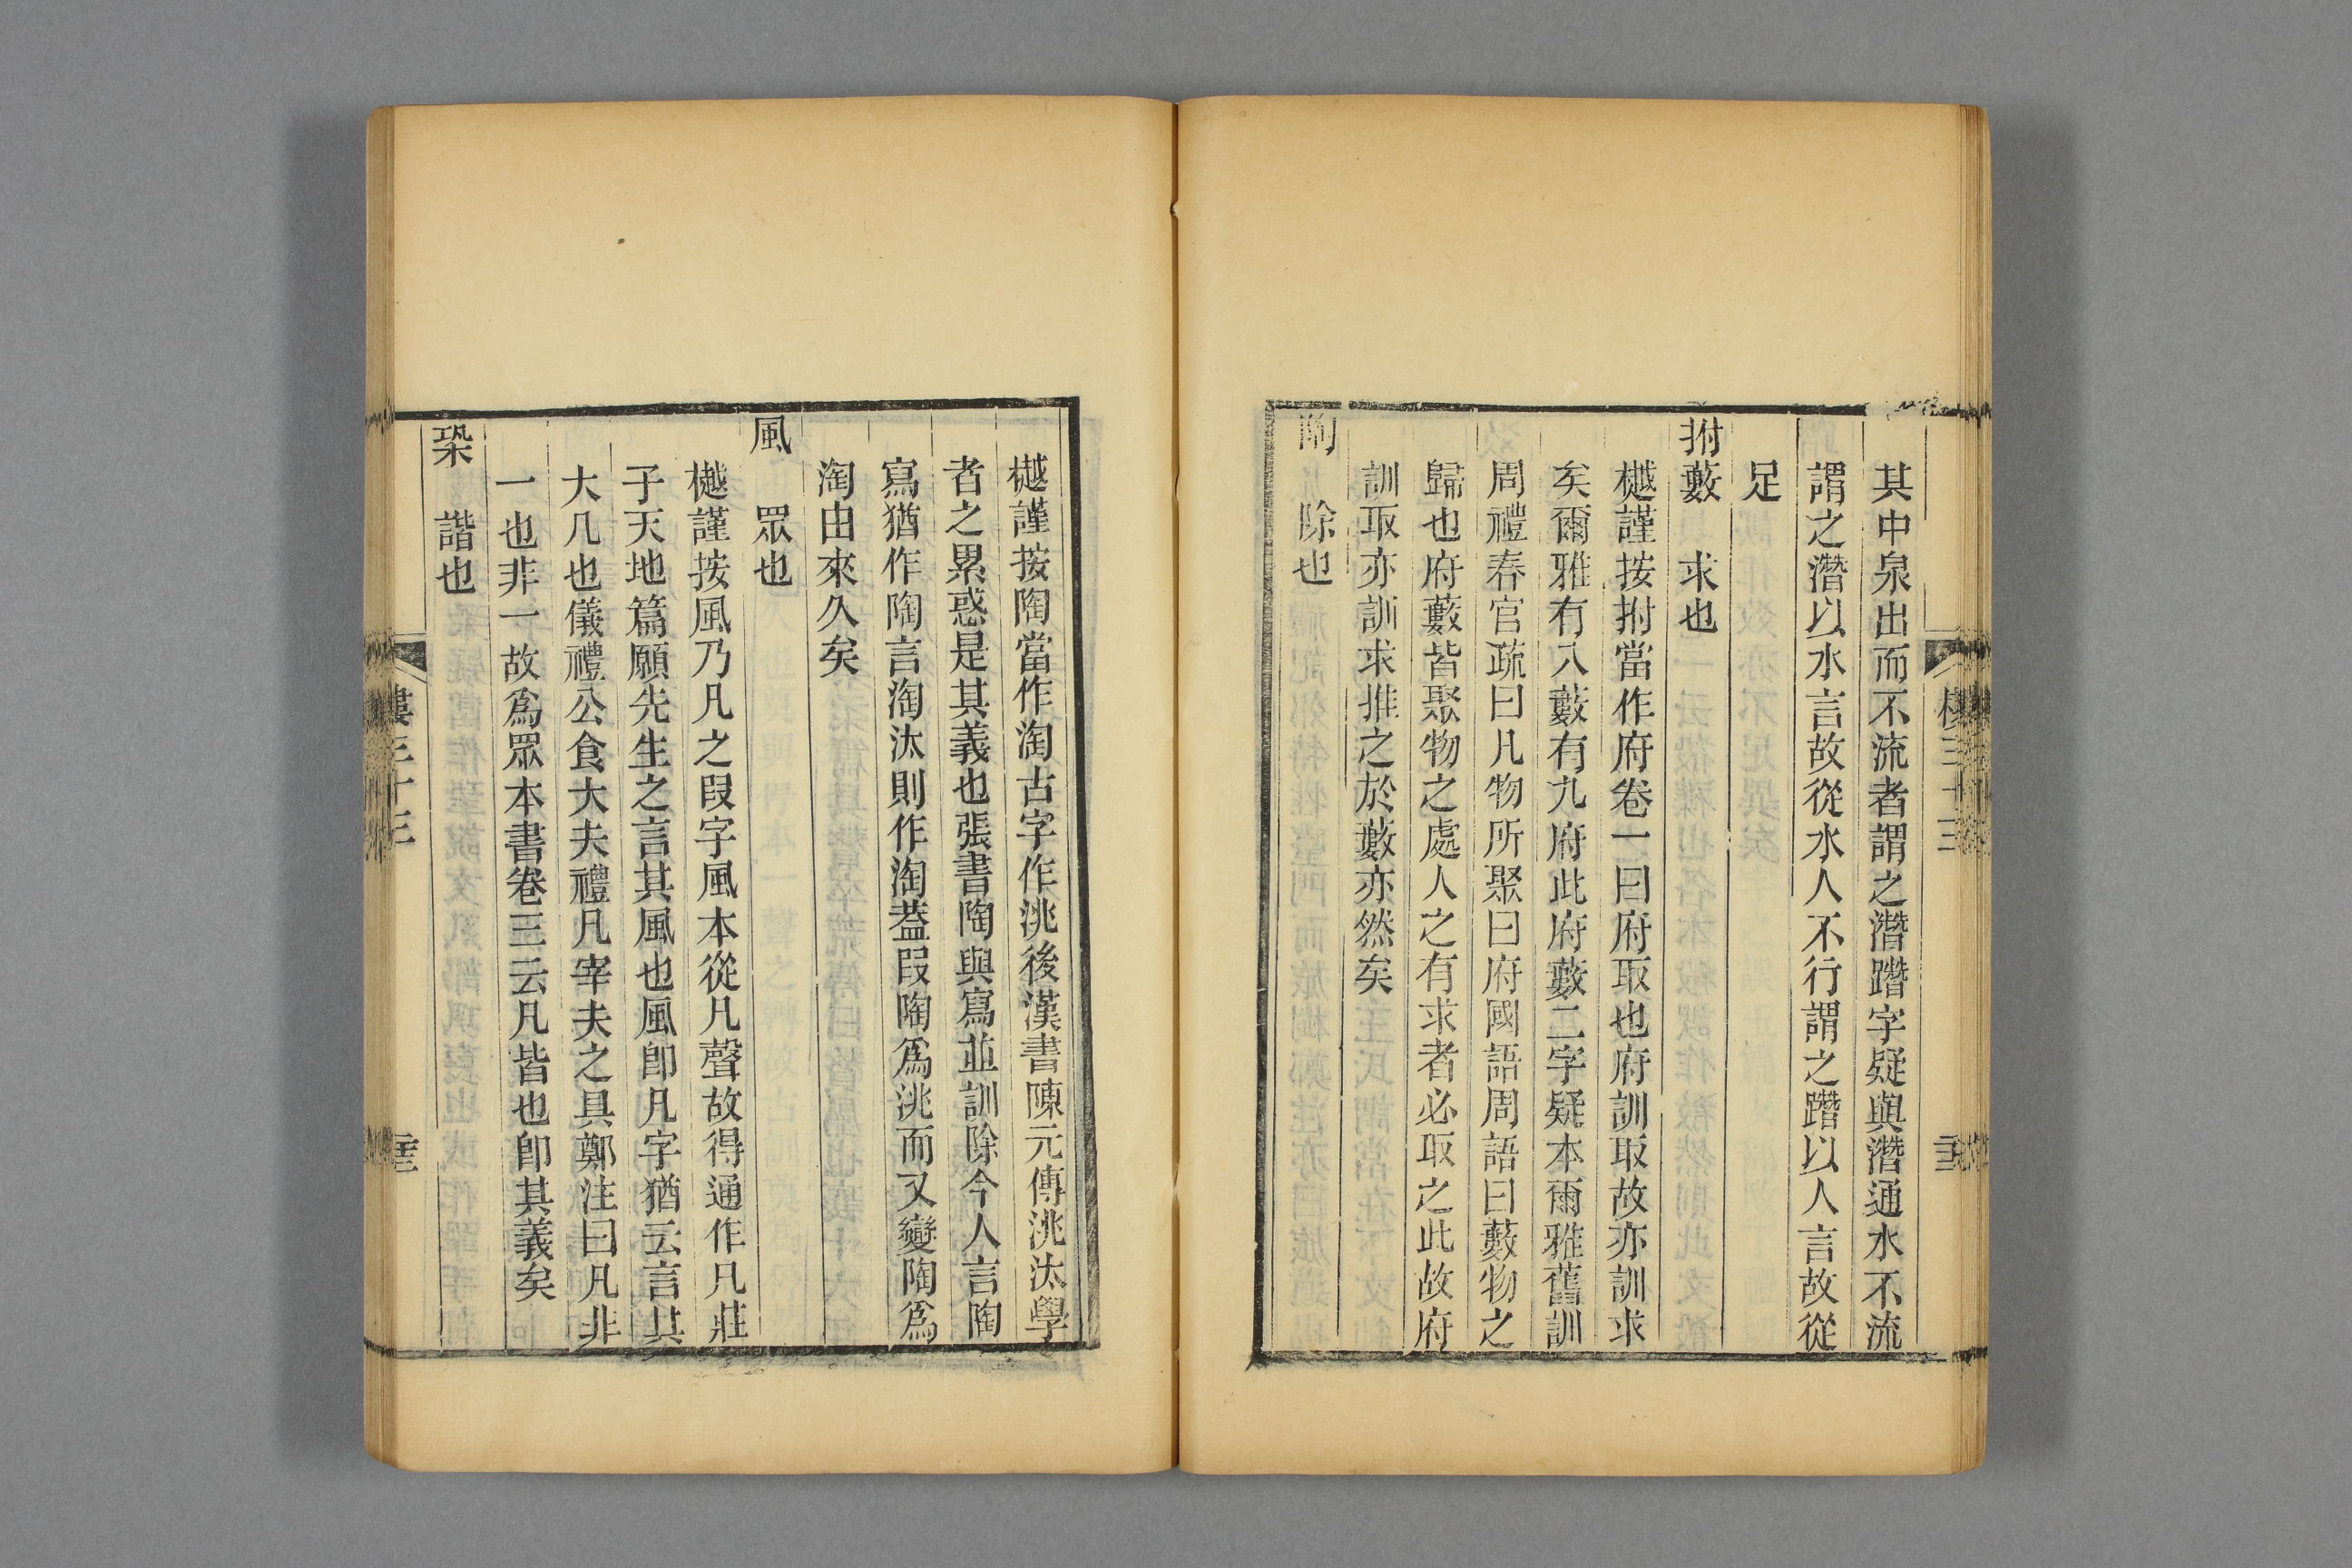 其中泉出而不流者謂之濳蹧字疑與濳通水不流
謂之濳以水言故從水人不行謂之蹧以人言故從
足
拊藪　求也
樾謹按拊當作府卷一曰府取也府訓取故亦訓求
矣爾雅有八藪有九府此府藪二字疑本爾雅舊訓
周禮春官疏曰凡物所聚曰府國語周語曰藪物之
歸也府藪皆聚物之處人之有求者必取之此故府
訓取亦訓求推之於藪亦然矣
陶　除也
樾謹按陶當作淘古字作洮後漢書陳元傳洮汰學
者之累惑是其義也張書陶與寫並訓除今人言陶
寫猶作陶言淘汰則作淘葢叚陶爲洮而又變陶爲
淘由來久矣
風　眾也
樾謹按風乃凡之叚字風本從凡聲故得通作凡莊
子天地篇願先生之言其風也風卽凡字猶云言其
大凡也儀禮公食大夫禮凡宰夫之具鄭注曰凡非
一也非一故爲眾本書卷三云凡皆也卽其義矣
䂬　諧也
樓三十三